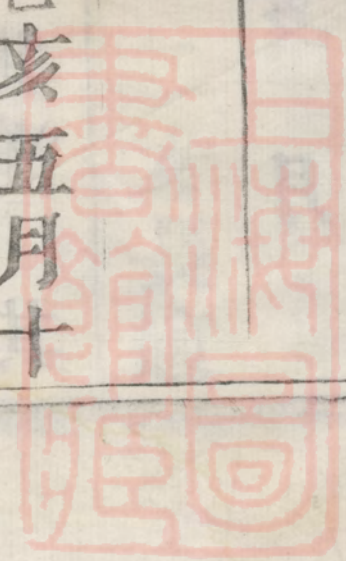 亥五月十
上海圖
書館藏